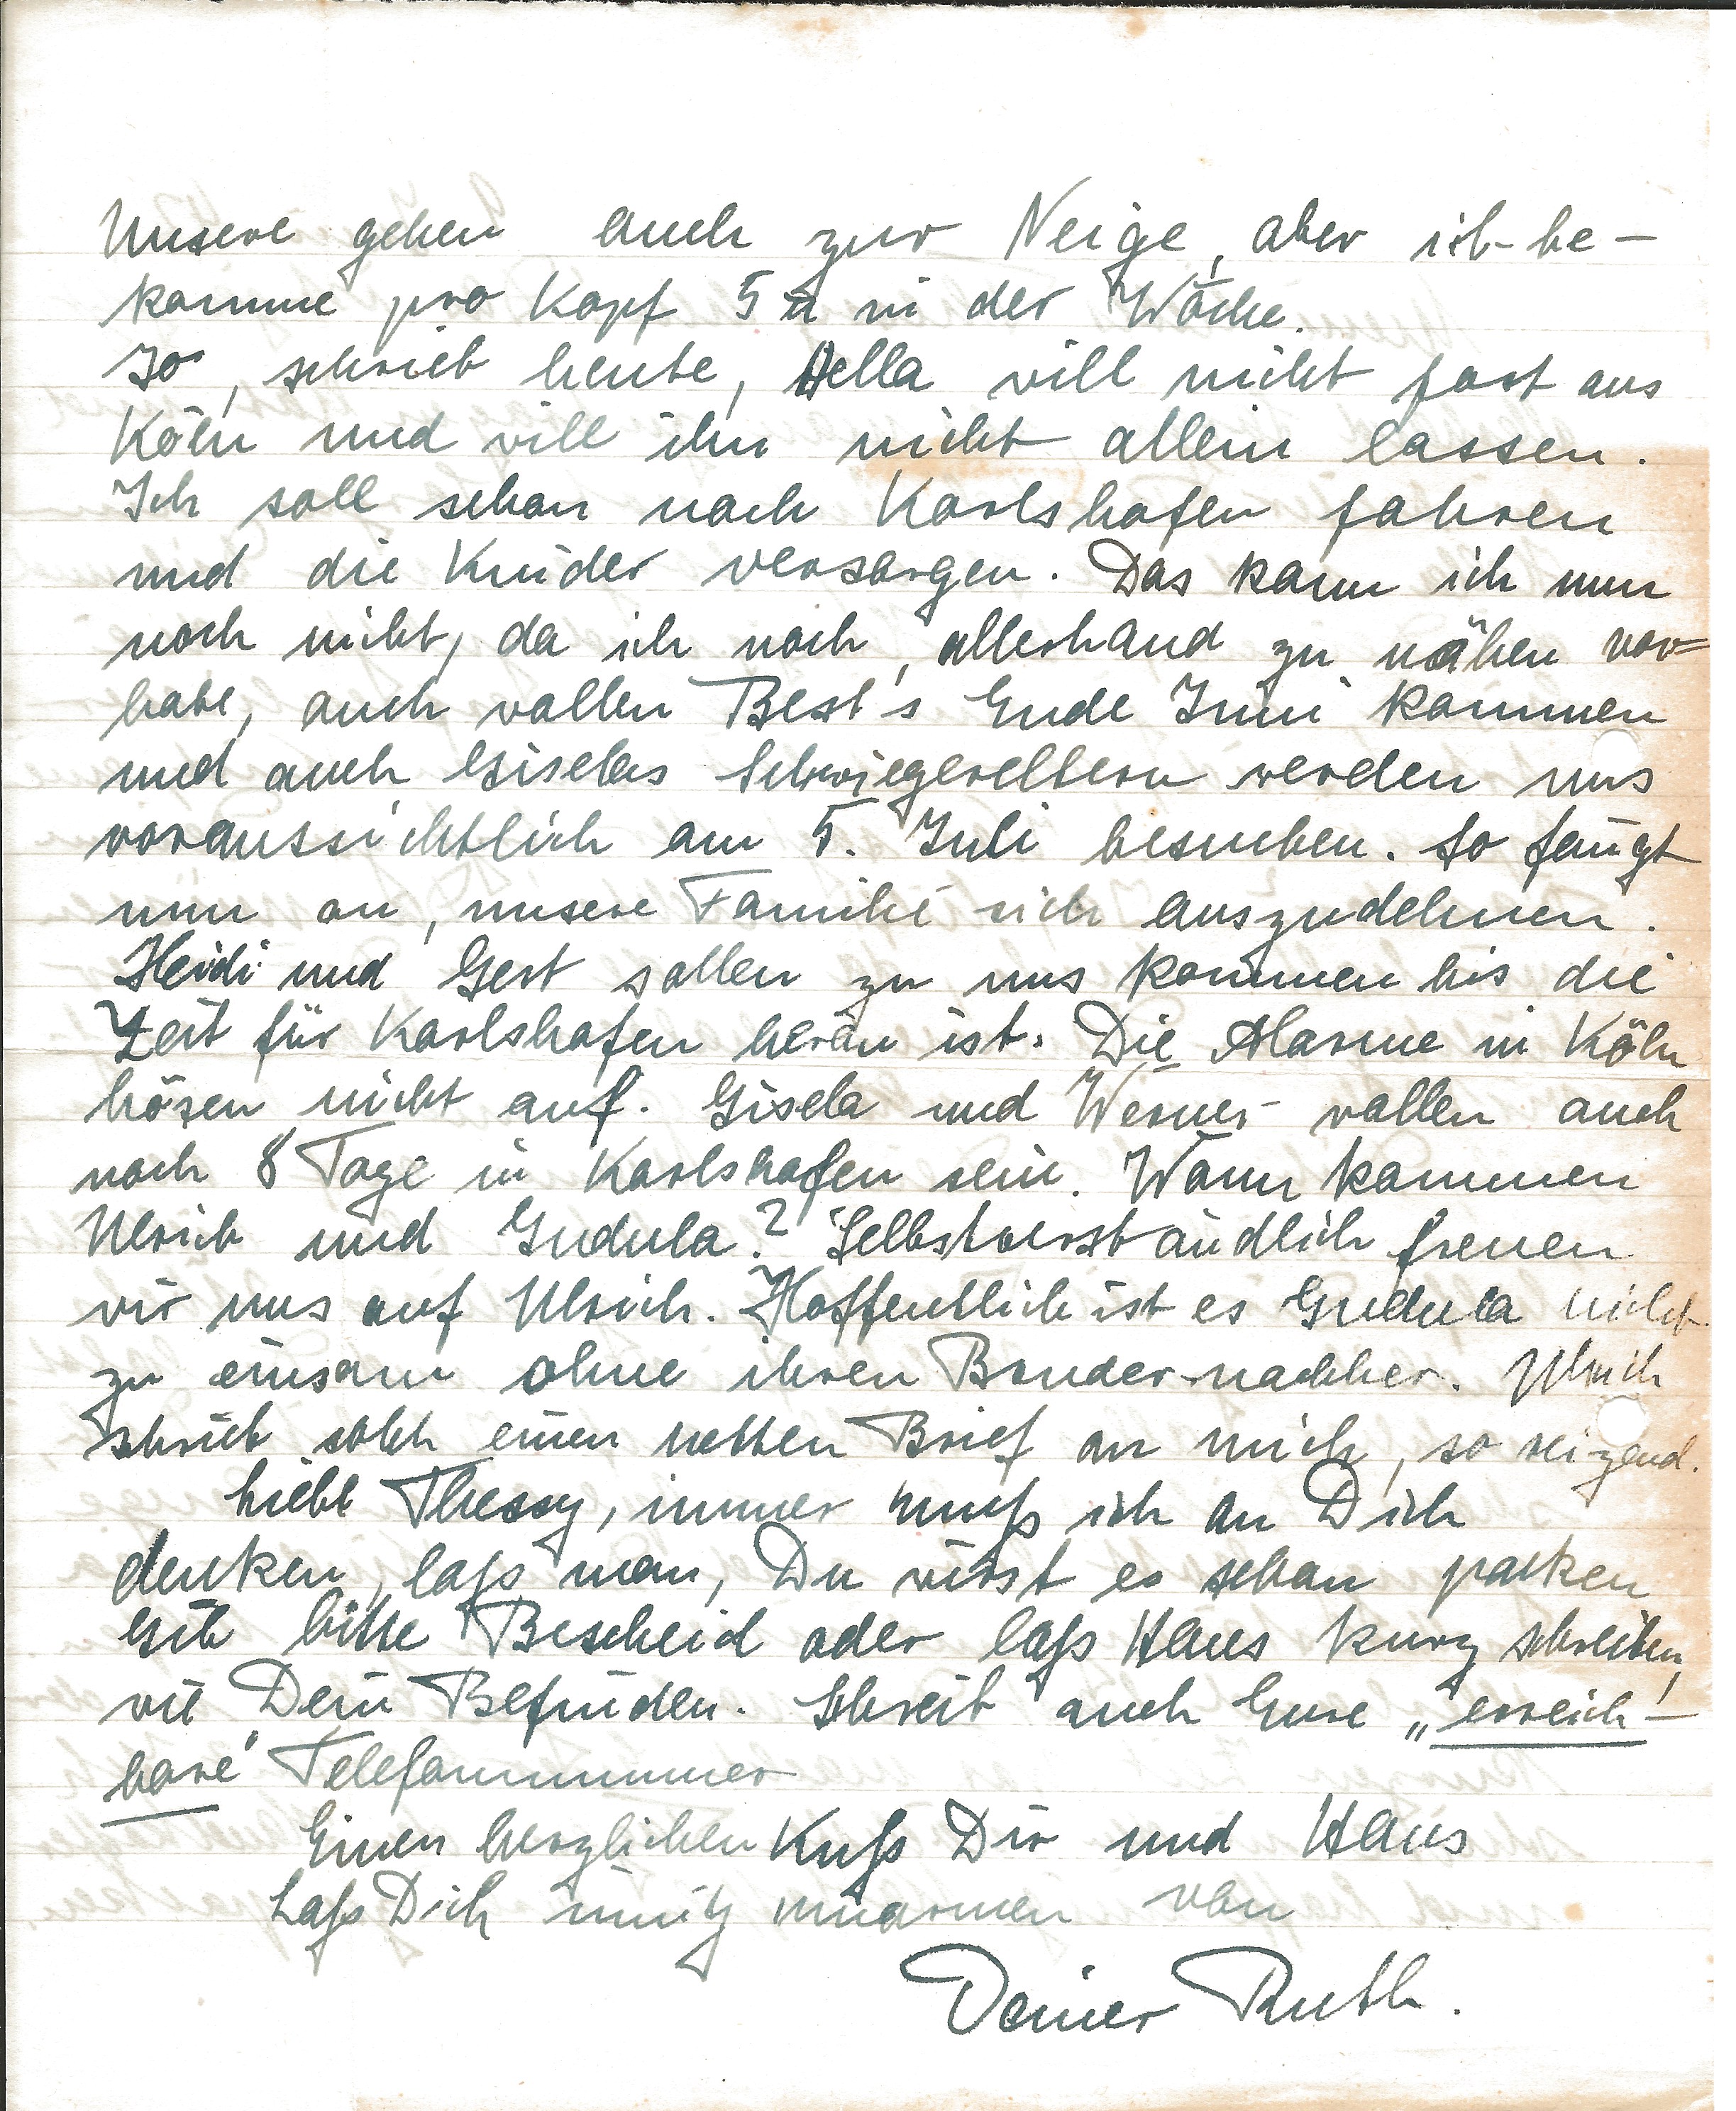 Unsere gehen auch zur Neige, aber ich be-
komme pro Kopf 5 ℔ in der Woche.
Jo, schrieb heute, Hella will nicht fort aus
Köln und will ihn nicht allein lassen.
Ich soll schon nach Karlshafen fahren
und die Kinder versorgen. Das kann ich nun
noch nicht, da ich noch, allerhand zu nähen vor=
habe, auch wollen Best's Ende Juni kommen
und auch Giselas Schwiegereltern werden uns
voraussichtlich am 5. Juli besuchen. So fängt
nun an, unsere Familie sich auszudehnen.
Heidi und Gert sollen zu uns kommen bis die
Zeit für Karlshafen heran ist. Die Alarme in Köln
hören nicht auf. Gisela und Werner wollen auch
noch 8 Tage in Karlshafen sein. Wann kommen
Ulrich und Gudula? Selbstverständlich freuen
wir uns auf Ulrich. Hoffentlich ist es Gudula nicht
zu einsam ohne ihren Bruder nachher. Ulrich
schrieb solch einen netten Brief an mich, so reizend.
Liebe Thessy, immer muß ich an Dich
denken, laß man, Du wirst es schon packen
Gib bitte Bescheid oder laß Hans kurz schreiben,
wie Dein Befinden. Schreib auch Eure „erreich-
bare" Telefonnummer
Einen herzlichen Kuß Dir und Hans
Laß Dich innig umarmen von
Deiner Ruth.